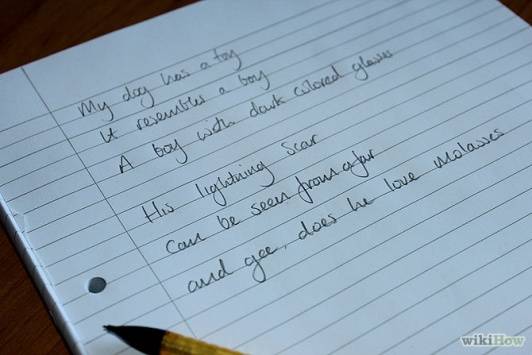 My dog has a toy
It resembles a boy
A boy with dark colored glasses
His lightning scar
can be seen from afar
and gee, does he love molasses
wikiHow